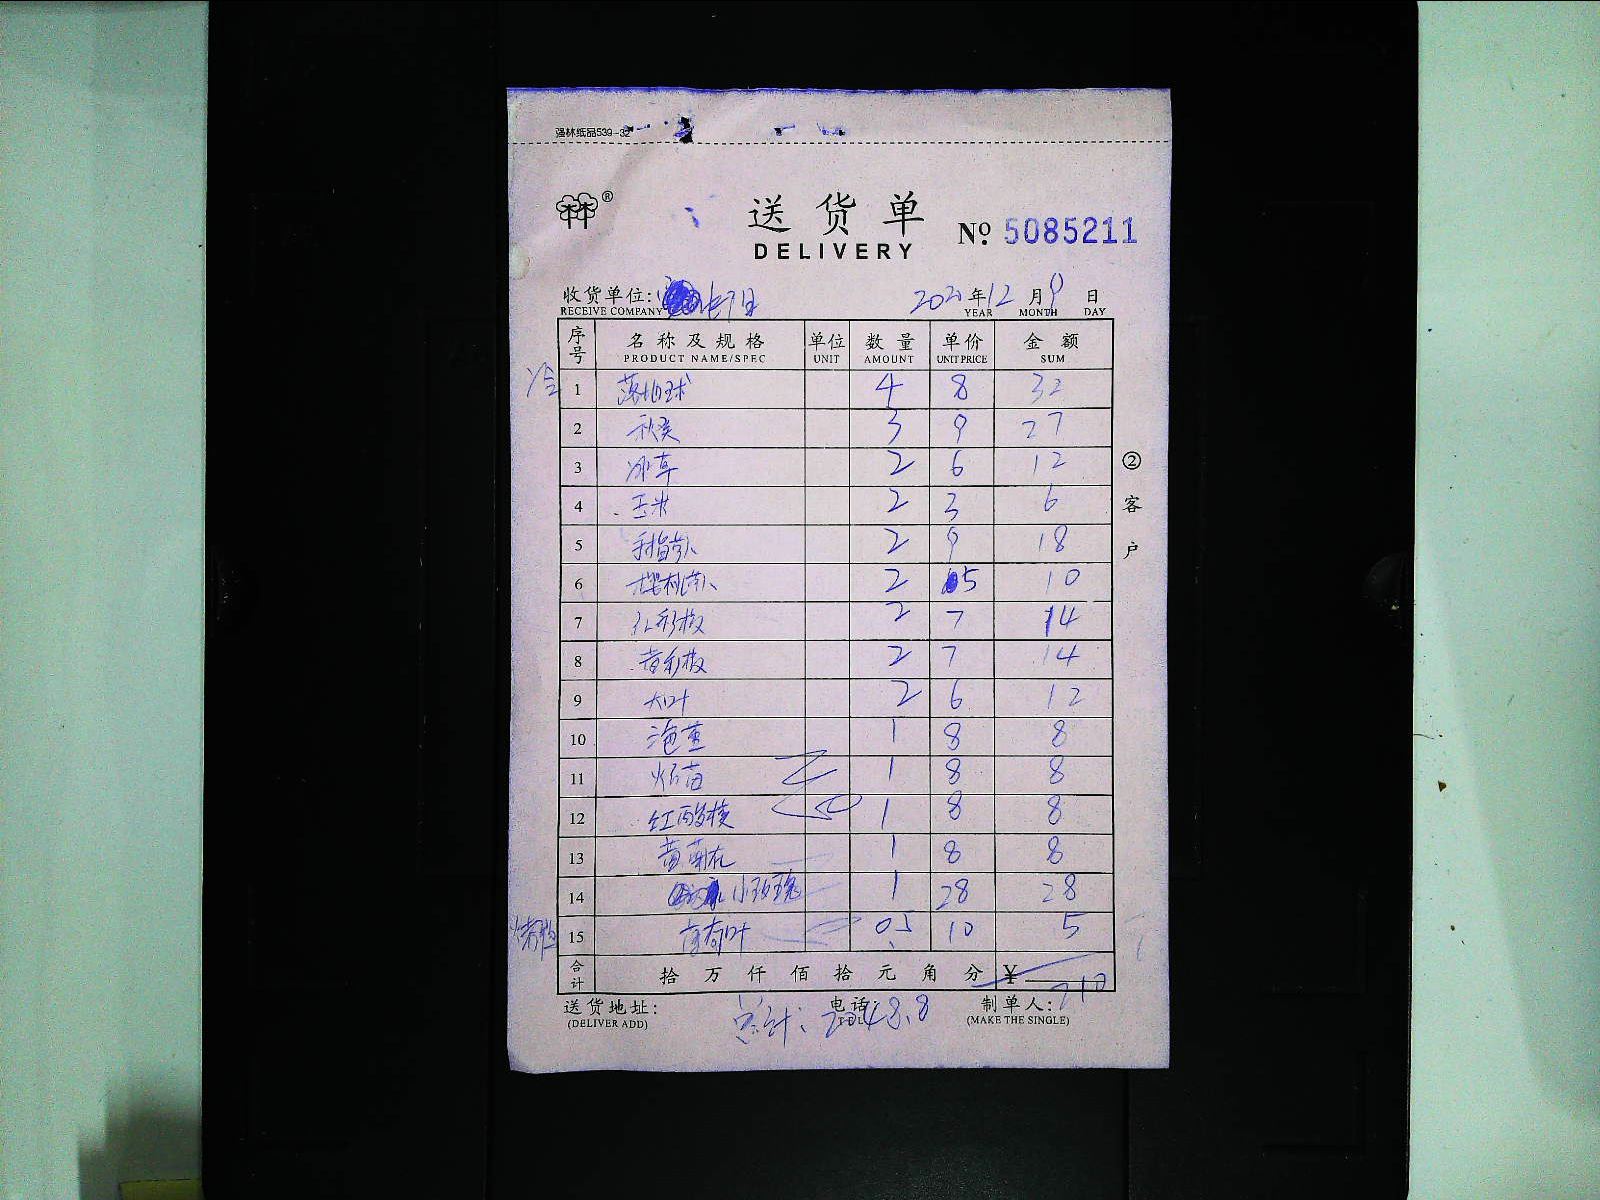 强林纸品539-32
送货单
DELIVERY
№ 5085211
收货单位: 2021年12月9日
RECEIVE COMPANY YEAR MONTH DAY
序号 名称及规格 单位 数量 单价 金额
PRODUCT NAME/SPEC UNIT AMOUNT UNIT PRICE SUM
冷 1 4 8 32
2 秋葵 3 9 27
3 冰草 2 6 12
4 玉米 2 3 6
5 手指萝卜 2 9 18
6 樱桃萝卜 2 5 10
7 红彩椒 2 7 14
8 黄彩椒 2 7 14
9 大叶 2 6 12
10 1 8 8
11 1 8 8
12 红酸模 1 8 8
13 1 8 8
14 小玫瑰 1 28 28
15 0.5 10 5
合计 拾万仟佰拾元角分 ¥ 210
②客户
送货地址: 电话: 制单人:
(DELIVER ADD) TEL (MAKE THE SINGLE)
总计: 2048.8